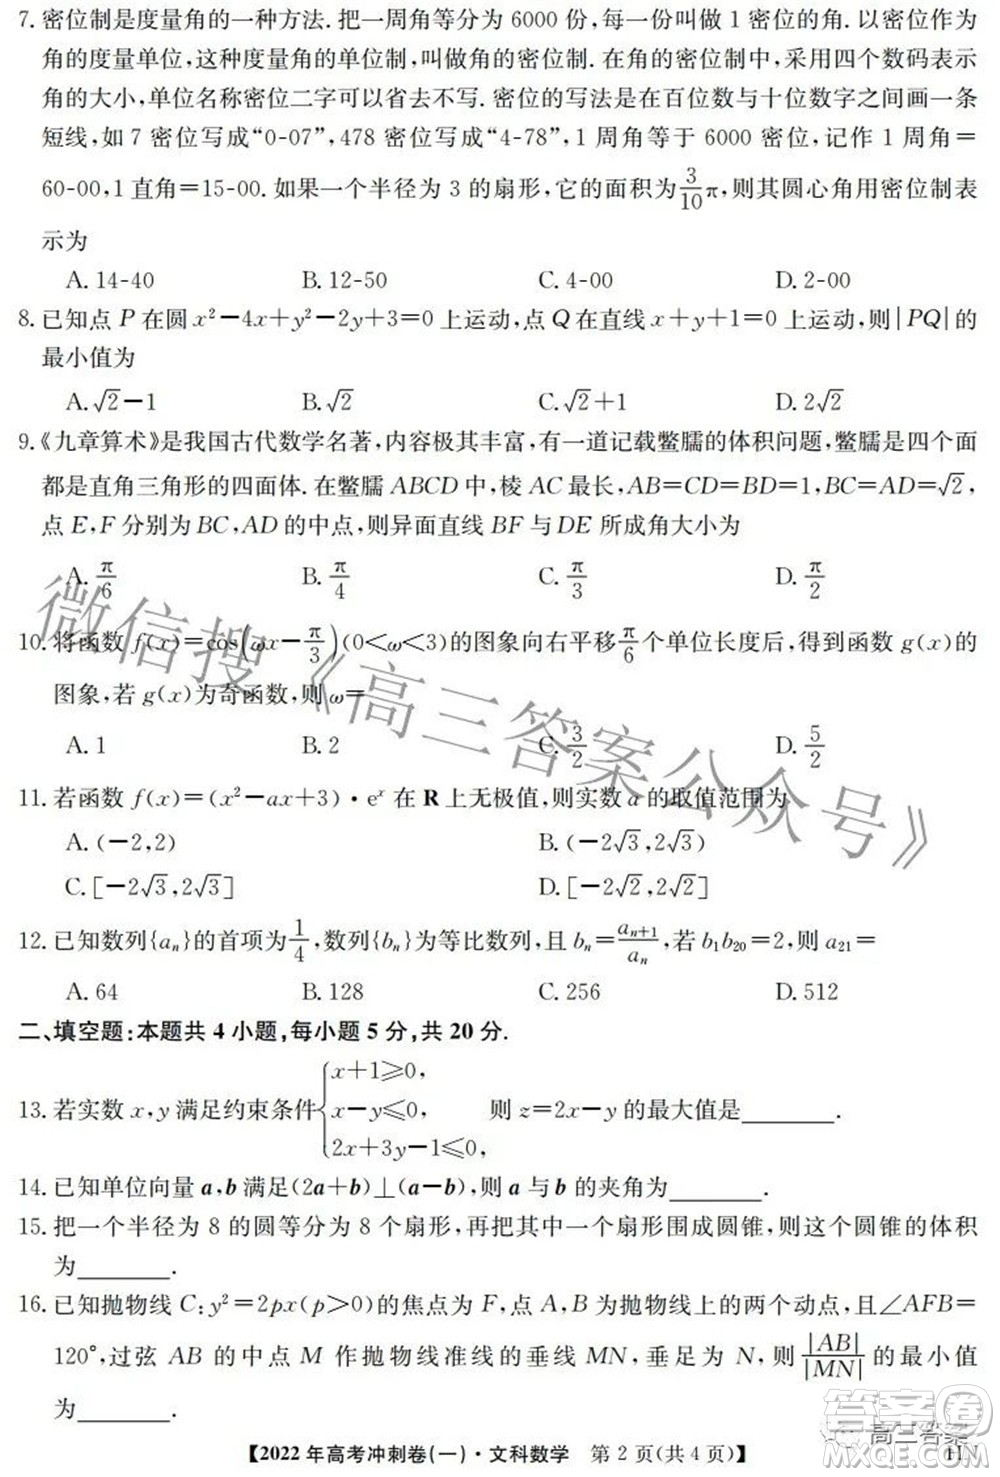 7. 密位制是度量角的一种方法. 把一周角等分为 6000 份, 每一份叫做 1 密位的角. 以密位作为
角的度量单位, 这种度量角的单位制, 叫做角的密位制. 在角的密位制中, 采用四个数码表示
角的大小, 单位名称密位二字可以省去不写. 密位的写法是在百位数与十位数字之间画一条
短线, 如 7 密位写成“0-07”, 478 密位写成“4-78”, 1 周角等于 6000 密位, 记作 1 周角=
60-00, 1 直角=15-00. 如果一个半径为 3 的扇形, 它的面积为 3/10 π, 则其圆心角用密位制表
示为
A. 14-40 B. 12-50 C. 4-00 D. 2-00
8. 已知点 P 在圆 x²-4x+y²-2y+3=0 上运动, 点 Q 在直线 x+y+1=0 上运动, 则|PQ|的
最小值为
A. √2-1 B. √2 C. √2+1 D. 2√2
9.《九章算术》是我国古代数学名著, 内容极其丰富, 有一道记载鳖臑的体积问题, 鳖臑是四个面
都是直角三角形的四面体. 在鳖臑 ABCD 中, 棱 AC 最长, AB=CD=BD=1, BC=AD=√2,
点 E, F 分别为 BC, AD 的中点, 则异面直线 BF 与 DE 所成角大小为
A. π/6 B. π/4 C. π/3 D. π/2
10. 将函数 f(x)=cos(ωx-π/3)(0<ω<3)的图象向右平移 π/6 个单位长度后, 得到函数 g(x)的
图象, 若 g(x)为奇函数, 则 ω=
A. 1 B. 2 C. 3/2 D. 5/2
11. 若函数 f(x)=(x²-ax+3)·eˣ 在 R 上无极值, 则实数 a 的取值范围为
A. (-2,2) B. (-2√3,2√3)
C. [-2√3,2√3] D. [-2√2,2√2]
12. 已知数列{aₙ}的首项为 1/4, 数列{bₙ}为等比数列, 且 bₙ=aₙ₊₁/aₙ, 若 b₁b₂₀=2, 则 a₂₁=
A. 64 B. 128 C. 256 D. 512
二、填空题: 本题共 4 小题, 每小题 5 分, 共 20 分.
13. 若实数 x, y 满足约束条件{x+1≥0, x-y≤0, 2x+3y-1≤0, 则 z=2x-y 的最大值是________.
14. 已知单位向量 a, b 满足(2a+b)⊥(a-b), 则 a 与 b 的夹角为________.
15. 把一个半径为 8 的圆等分为 8 个扇形, 再把其中一个扇形围成圆锥, 则这个圆锥的体积
为________.
16. 已知抛物线 C: y²=2px(p>0)的焦点为 F, 点 A, B 为抛物线上的两个动点, 且∠AFB=
120°, 过弦 AB 的中点 M 作抛物线准线的垂线 MN, 垂足为 N, 则 |AB|/|MN| 的最小值
为________.
【2022 年高考冲刺卷(一)·文科数学 第 2 页(共 4 页)】 HN
微信搜《高三答案公众号》
高三答案
答案卷